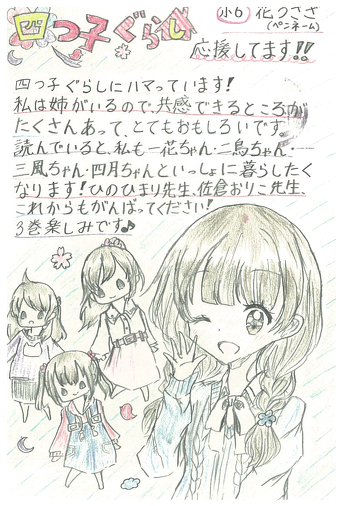 四つ子ぐらし
小6 花うさぎ
(ペンネーム)
応援してます!!
四つ子ぐらしにハマっています!
私は姉がいるので、共感できるところが
たくさんあって、とてもおもしろいです。
読んでいると、私も一花ちゃん・二鳥ちゃん・
三風ちゃん・四月ちゃんといっしょに暮らしたく
なります!ひのひまり先生、佐倉おりこ先生、
これからもがんばってください!
3巻楽しみです♪